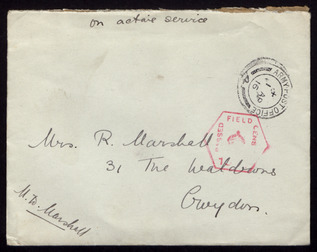 on active service
ARMY POST OFFICE
PASSED FIELD CENSOR
Mrs. R. Marshall
31 The Waldrons
Croydon.
Marshall